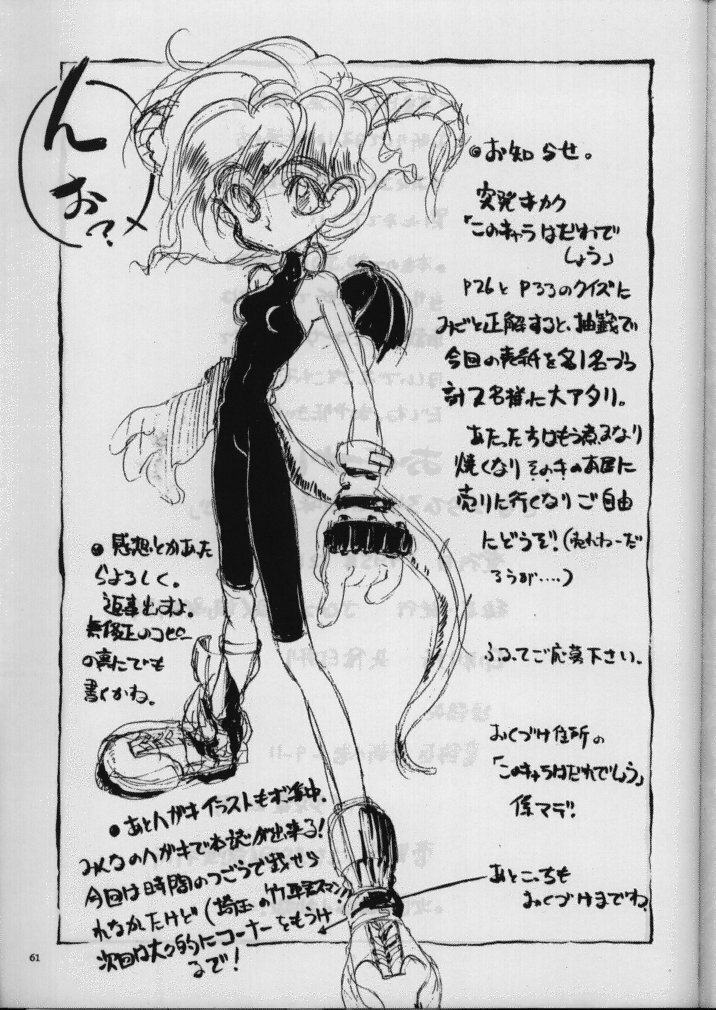 んお?
●お知らせ。
突発キカク
「このキャラはだれで
しょう」
P26と P33のクイズに
みごと正解すると、抽籤で
今回の表紙を各1名づつ
計2名様に大アタリ。
あたった方はもう煮るなり
焼くなり その手のお店に
売りに行くなりご自由
にどうぞ!(売れねーだ
ろうが‥‥)
ふるってご応募下さい。
おくづけ住所の
「このキャラはだれでしょう」
係マデ!
あとこっちも
おくづけまでね。
●感想とかあた
らよろしく。
返事出すよ。
無修正のコピー
の裏にでも
書くかね。
●あとハガキイラストもボ集中。
みんなのハガキで本誌が出来る!
今回は時間のつごうで載せら
れなかたけど(埼玉の竹
スマン!!)
次回は大々的にコーナーをもうけ
るで!
61